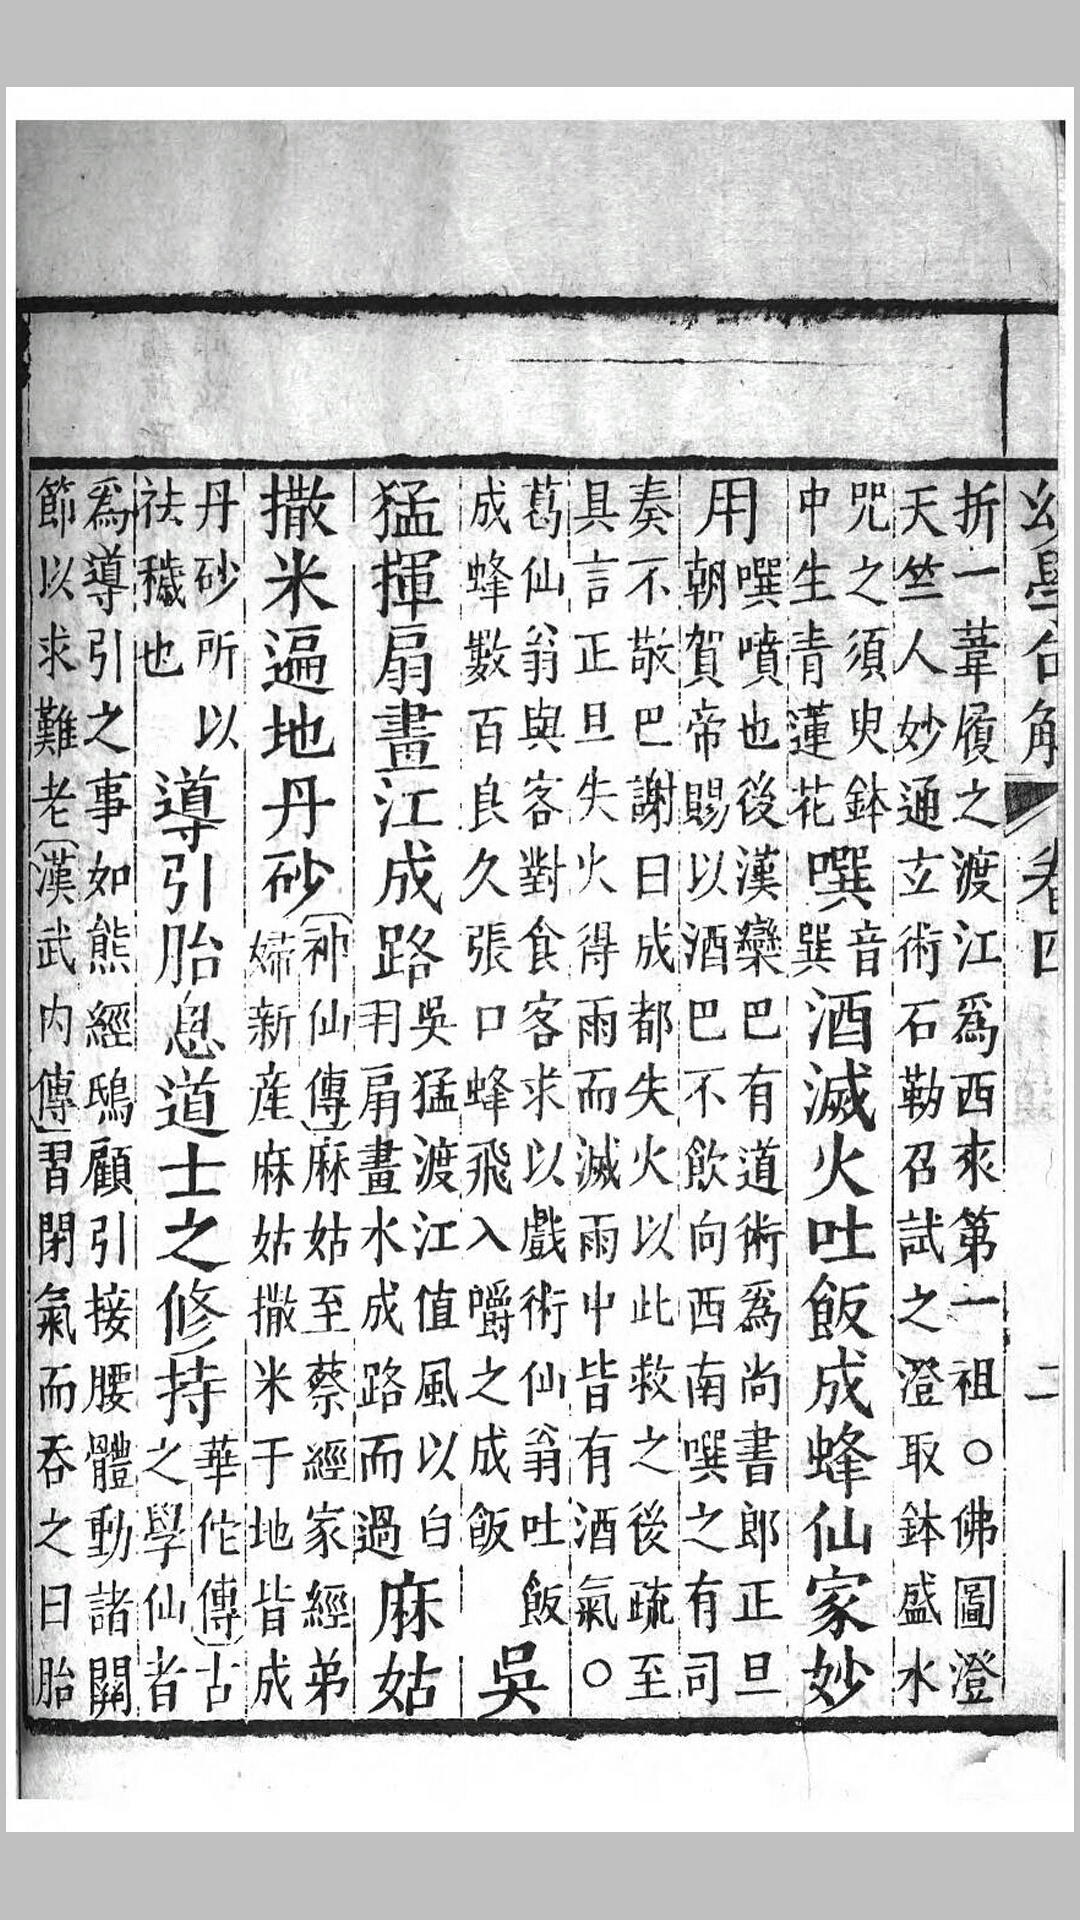 卷四
二
折一葦履之渡江爲西來第一祖○佛圖澄
天竺人妙通立術石勒召試之澄取鉢盛水
咒之須臾鉢
中生青蓮花
噀
音
巽
酒滅火吐飯成蜂仙家妙
用
噀噴也後漢欒巴有道術爲尚書郎正旦
朝賀帝賜以酒巴不飲向西南噀之有司
奏不敬巴謝曰成都失火以此救之後疏至
具言正旦失火得雨而滅雨中皆有酒氣○
葛仙翁與客對食客求以戲術仙翁吐飯
成蜂數百良久張口蜂飛入嚼之成飯
吳
猛揮扇畫江成路
吳猛渡江值風以白
羽扇畫水成路而過
麻姑
撒米遍地丹砂
神仙傳麻姑至蔡經家經弟
婦新産麻姑撒米于地皆成
丹砂所以
祛穢也
導引胎息道士之修持
華佗傳古
之學仙者
爲導引之事如熊經鴟顧引接腰體動諸關
節以求難老漢武内傳習閉氣而吞之曰胎